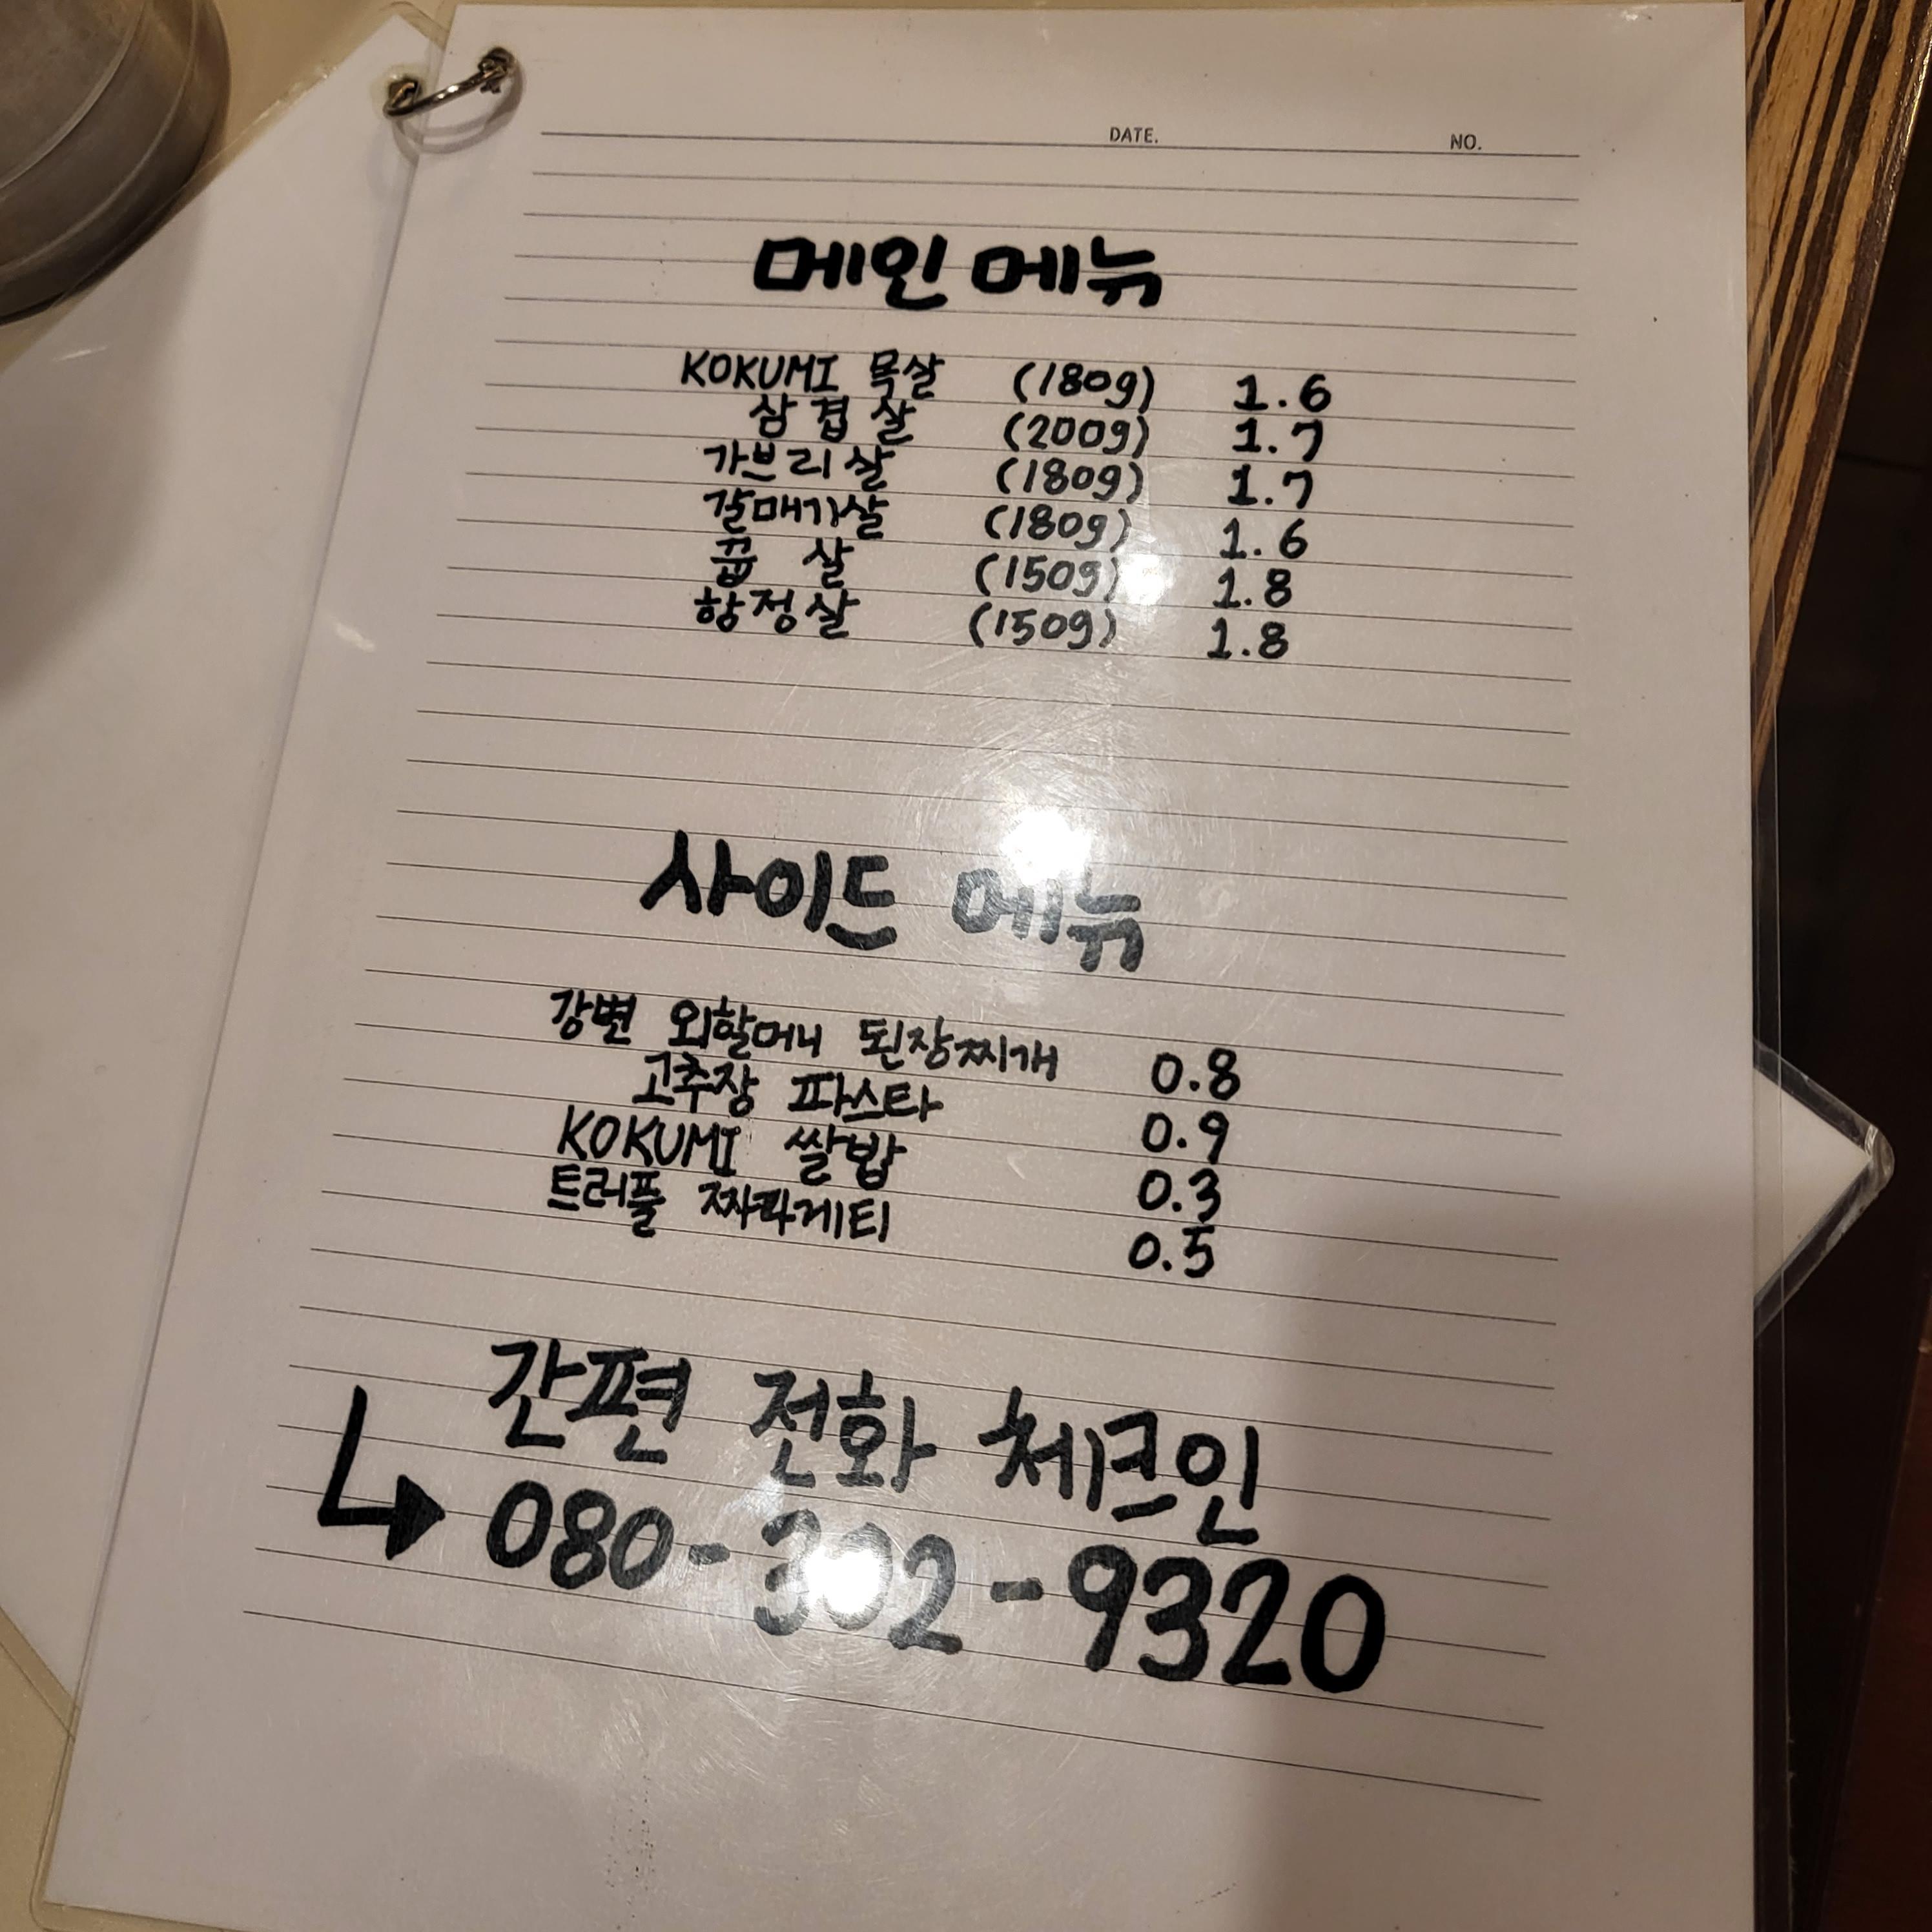 DATE. NO.
메인 메뉴
KOKUMI 목살 (180g) 1.6
삼겹살 (200g) 1.7
가브리살 (180g) 1.7
갈매기살 (180g) 1.6
꼽살 (150g) 1.8
항정살 (150g) 1.8
사이드 메뉴
강변 외할머니 된장찌개 0.8
고추장 파스타 0.9
KOKUMI 쌀밥 0.3
트러플 짜파게티 0.5
간편 전화 체크인
080-302-9320